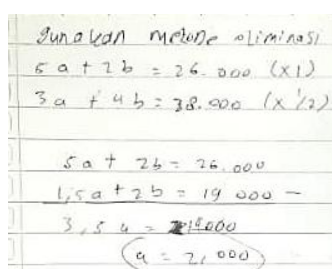 gunakan metode eliminasi
5a + 2b = 26.000 (x1)
3a + 4b = 38.000 (x 1/2)
5a + 2b = 26.000
1,5a + 2b = 19 000 -
3,5 a = 14000
a = 2,000